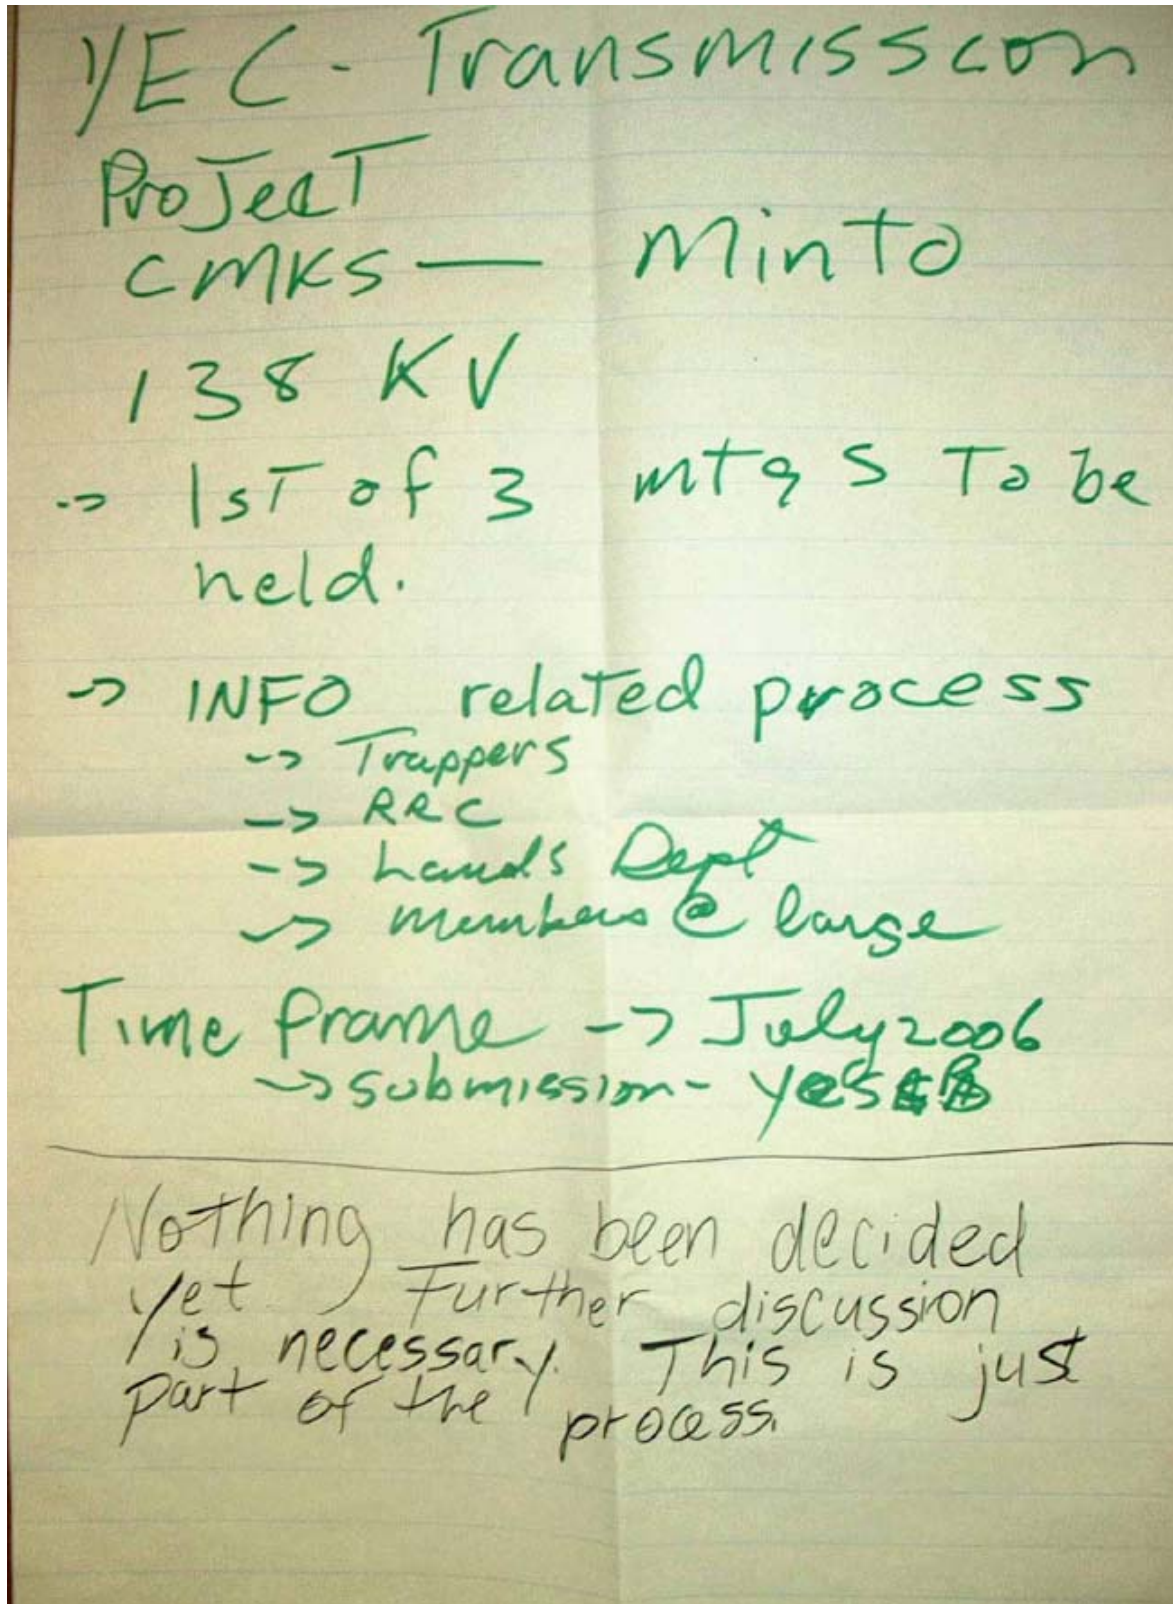 YEC - Transmission
Project
CMKS — Minto
138 KV
-> 1sT of 3 mtgs To be
held.
-> INFO related process
-> Trappers
-> RRC
-> Lands Dept
-> members @ large
Time frame -> July 2006
-> submission - yes
Nothing has been decided
yet. Further discussion
is necessary. This is just
part of the process.